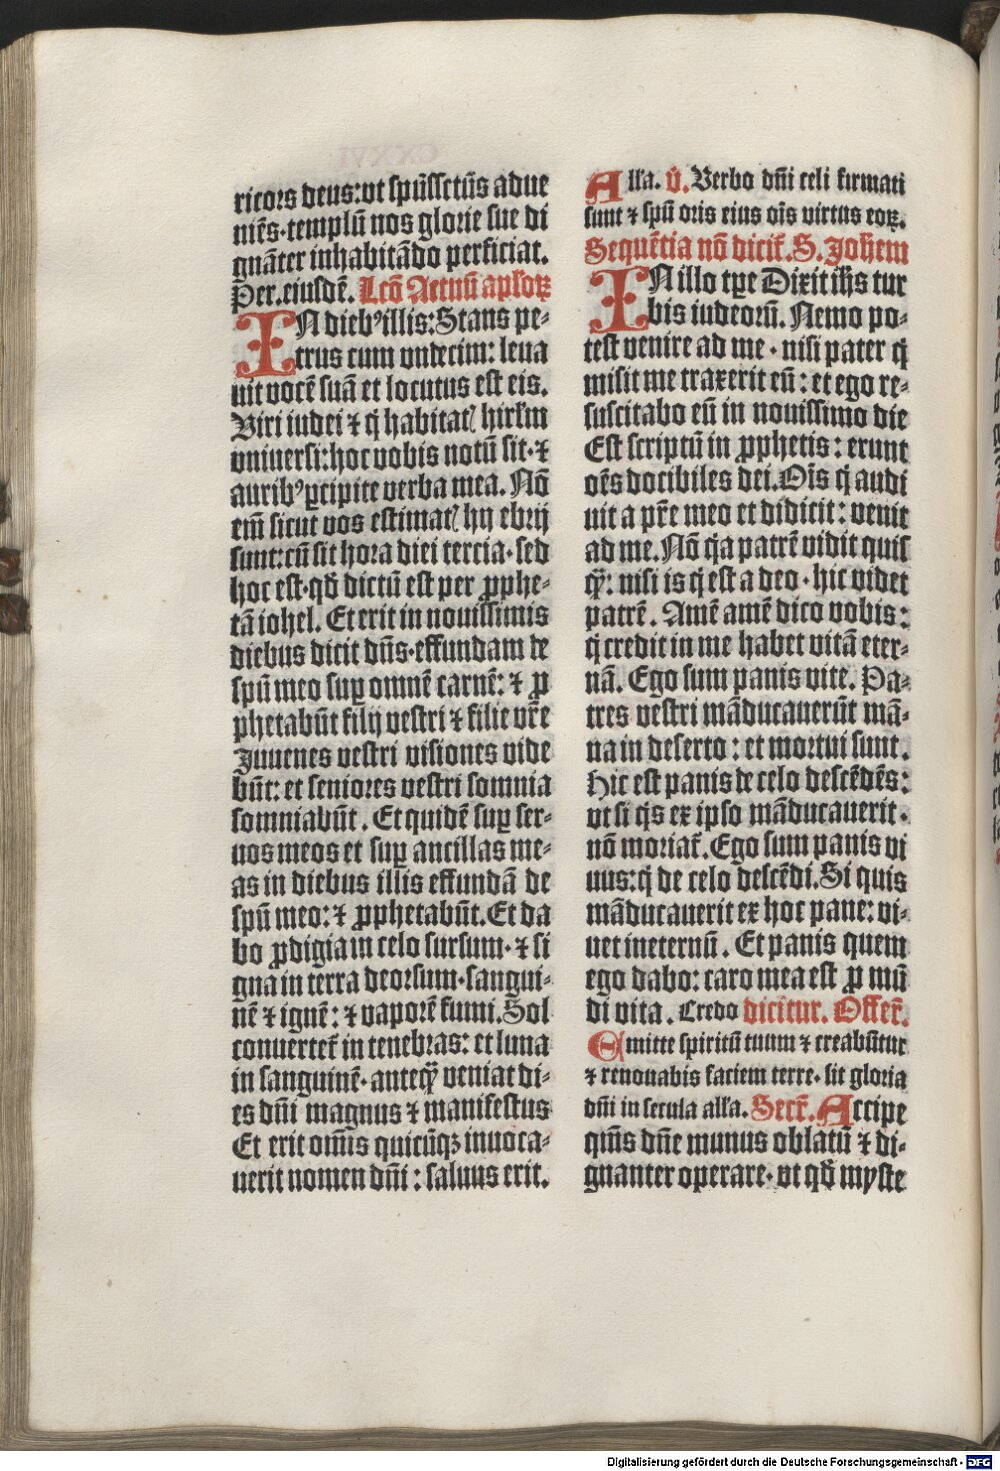 ricors deus: vt spūssctūs adue
niēs· templū nos glorie sue di
gnāter inhabitādo perficiat.
Per. eiusdē. Lcō Actuū aplōꝝ
IN dieb᷒ illis: Stans pe-
trus cum vndecim: leua
uit vocē suā et locutus est eis.
Viri iudei ⁊ q̄ habitatꝭ hirlm̄
vniuersi: hoc vobis notū sit· ⁊
aurib᷒ ꝑcipite verba mea. Nō
em̄ sicut vos estimatꝭ hij ebrij
sunt: cū sit hora diei tercia· sed
hoc est· qd̄ dictū est per ꝓphe-
tā iohel. Et erit in nouissimis
diebus dicit dn̄s· effundam de
spū meo suꝑ omnē carnē: ⁊ ꝓ
phetabūt filij vestri ⁊ filie vr̄e
Iuuenes vestri visiones vide
būt: et seniores vestri somnia
somniabūt. Et quidē suꝑ ser-
uos meos et suꝑ ancillas me-
as in diebus illis effundā de
spū meo: ⁊ ꝓphetabūt. Et da
bo ꝓdigia in celo sursum· ⁊ si
gna in terra deorsum· sangui-
nē ⁊ ignē: ⁊ vaporē fumi. Sol
conuertet̄ in tenebras: et luna
in sanguinē· anteq̄ꝫ veniat di-
es dn̄i magnus ⁊ manifestus
Et erit om̄is quicūqꝫ inuoca-
uerit nomen dn̄i: saluus erit.
Alla. v̄. Verbo dn̄i celi firmati
sunt ⁊ spū oris eius oīs virtus eoꝝ.
Sequētia nō dicit̄. S. Johem
IN illo tꝑe Dixit ih̄s tur
bis iudeorū. Nemo po-
test venire ad me· nisi pater q̄
misit me traxerit eū: et ego re-
suscitabo eū in nouissimo die
Est scriptū in ꝓphetis: erunt
oēs docibiles dei. Oīs q̄ audi
uit a pr̄e meo et didicit: venit
ad me. Nō q̄a patrē vidit quis
q̄ꝫ: nisi is q̄ est a deo· hic videt
patrē. Amē amē dico vobis:
q̄ credit in me habet vitā eter-
nā. Ego sum panis vite. Pa-
tres vestri māducauerūt mā-
na in deserto: et mortui sunt.
Hic est panis de celo descēdēs:
vt si q̄s ex ipso māducauerit·
nō moriat̄. Ego sum panis vi
uus: q̄ de celo descēdi. Si quis
māducauerit ex hoc pane: vi-
uet ineternū. Et panis quem
ego dabo: caro mea est ꝓ mū
di vita. Credo dicitur. Offer̄.
Emitte spiritū tuum ⁊ creabūtur
⁊ renouabis faciem terre· sit gloria
dn̄i in secula alla. Secr̄. Accipe
qm̄s dn̄e munus oblatū ⁊ di-
gnanter operare· vt qd̄ myste
Digitalisierung gefördert durch die Deutsche Forschungsgemeinschaft - DFG